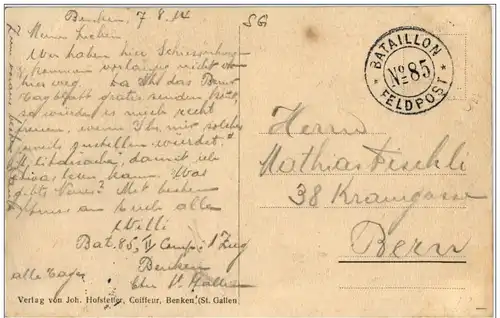 Benken, 7 8. 14
SG
Meine Lieben
Wir haben hier
kommen vorläufig nicht von
hier weg. Da Ihr das
Tagblatt gratis senden
so würde es mich recht
freuen, wenn Ihr mir solches
jeweils zustellen würdet.
damit ich
etwas lesen kann. Was
gibts Neues? Mit besten
Gruss an Euch alle
Willi
Bat. 85, II Comp. 1 Zug
Benken
Ktn St. Gallen
alle Tage
BATAILLON
No 85
FELDPOST
Herrn
Mathias Fischli
38 Kramgasse
Bern
Verlag von Joh. Hofstetter, Coiffeur, Benken (St. Gallen